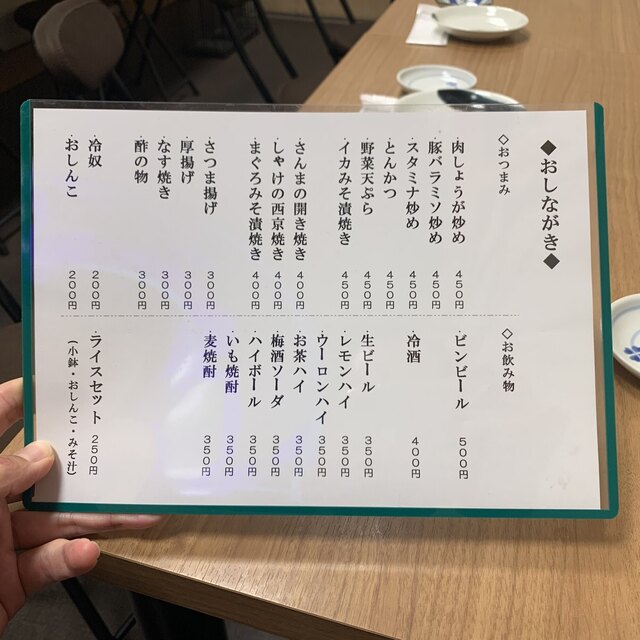 ◆おしながき◆
◇おつまみ
・肉しょうが炒め 450円
・豚バラミソ炒め 450円
・スタミナ炒め 450円
・とんかつ 450円
・野菜天ぷら 450円
・イカみそ漬焼き 450円
・さんまの開き焼き 400円
・しゃけの西京焼き 400円
・まぐろみそ漬焼き 400円
・さつま揚げ 300円
・厚揚げ 300円
・なす焼き 300円
・酢の物 300円
・冷奴 200円
・おしんこ 200円
◇お飲み物
・ビンビール 500円
・冷酒 400円
・生ビール 350円
・レモンハイ 350円
・ウーロンハイ 350円
・お茶ハイ 350円
・梅酒ソーダ 350円
・ハイボール 350円
・いも焼酎 350円
・麦焼酎 350円
・ライスセット 250円
(小鉢・おしんこ・みそ汁)